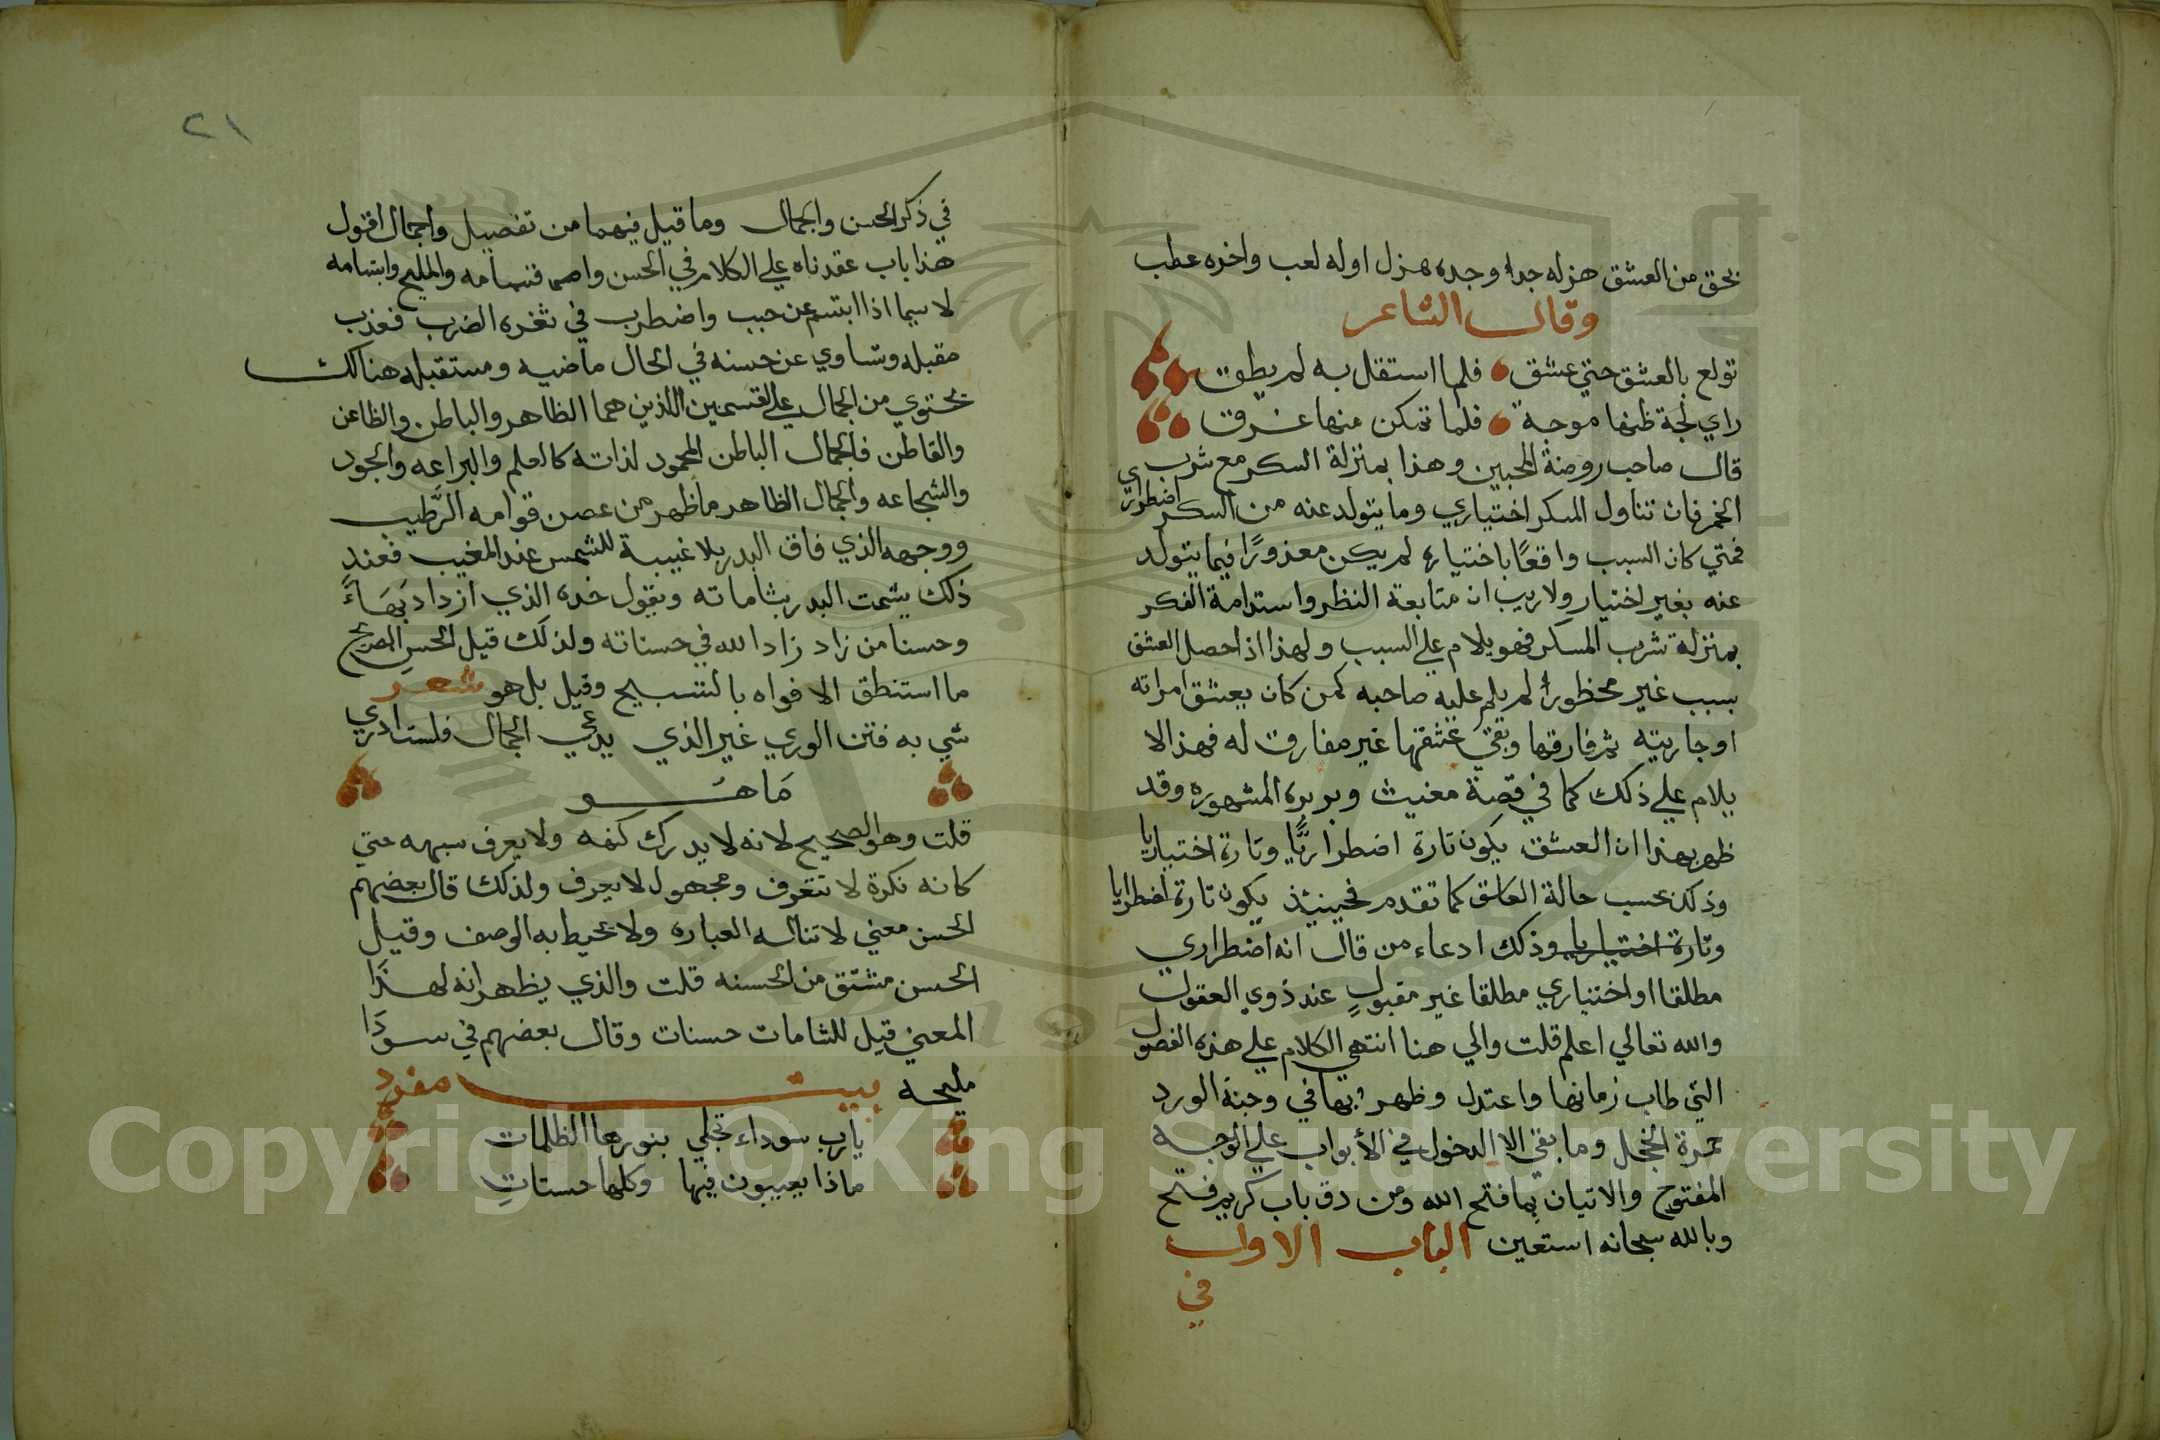 بحق من العشق هزله جد وجده هزل اوله لعب واخره عطب
وقال الشاعر
تولع بالعشق حتي عشق فلما استقل به لم يطق
راي لجة ظنها موجة فلما تمكن منها غرق
قال صاحب روضة المحبين وهذا بمنزلة السكر مع شرب
الخمر فان تناول المسكر اختياري وما يتولد عنه من السكر اضطراري
فمتي كان السبب واقعًا باختياره لم يكن معذورًا فيما يتولد
عنه بغير اختيار ولا ريب ان متابعة النظر واستدامة الفكر
بمنزلة شرب المسكر فهو يلام علي السبب ولهذا اذا حصل العشق
بسبب غير محظور لم يلم عليه صاحبه كمن كان يعشق امراته
او جاريته ثم فارقها وبقي عشقها غير مفارق له فهذا لا
يلام علي ذلك كما في قصة مغيث وبريره المشهوره وقد
ظهر بهذا ان العشق يكون تارة اضطراريًّا وتارة اختياريا
وذلك بحسب حالة العاشق كما تقدم فحينيئذ يكون تارة اضطراريا
وتارة اختياريا وذلك ادعاء من قال انه اضطراري
مطلقا او اختياري مطلقا غير مقبولٍ عند ذوي العقول
والله تعالي اعلم قلت والي هنا انتهي الكلام علي هذه الفصول
التي طاب زمانها واعتدل وظهر بها في وجنة الورد
حمرة الخجل وما بقي الا الدخول في الأبواب علي الوجه
المفتوح والاتيان بما فتح الله ومن دق باب كريم فتح
وبالله سبحانه استعين الباب الاول
في
٢١
في ذكر الحسن والجمال وما قيل فيهما من تفصيل واجمال اقول
هذا باب عقدناه علي الكلام في الحسن واصما فتسامه والمليح وابتسامه
لا سيما اذا ابتسم عن حبب واضطرب في ثغره الضرب فعذب
مقبله وتساوي عن حسنه في الحال ماضيه ومستقبله هنالك
يحتوي من الجمال علي القسمين اللذين هما الظاهر والباطن والظاعن
والقاطن فالجمال الباطن المحمود لذاته كالعلم والبراعه والجود
والشجاعه والجمال الظاهر ما ظهر من غصن قوامه الرَّطيب
ووجهه الذي فاق البدر بلا غيبة للشمس عند المغيب فعند
ذلك يشمت البدر بشاماته ويقول خده الذي ازداد بَهَاءً
وحسنا من زاد زاد الله في حسناته ولذلك قيل الحسن الصريح
ما استنطق الافواه بالتسبيح وقيل بل هو شعر
شي به فتن الوري غير الذي يدعي الجمال فلست ادري
مَا هُو
قلت وهو الصحيح لانه لا يدرك كنهه ولا يعرف سبهه حتي
كانه نكرة لا تتعرف ومجهول لا يعرف ولذلك قال بعضهم
الحسن معني لا تناله العباره ولا يحيط به الوصف وقيل
الحسن مشتق من الحسنه قلت والذي يظهر انه لهذا
المعني قيل للشامات حسنات وقال بعضهم في سودا
مليحه بيت مفرد
يارب سوداء تجلي بنورها الظلمات
ماذا يعيبون فيها وكلها حسناتِ
Copyright © King Saud University